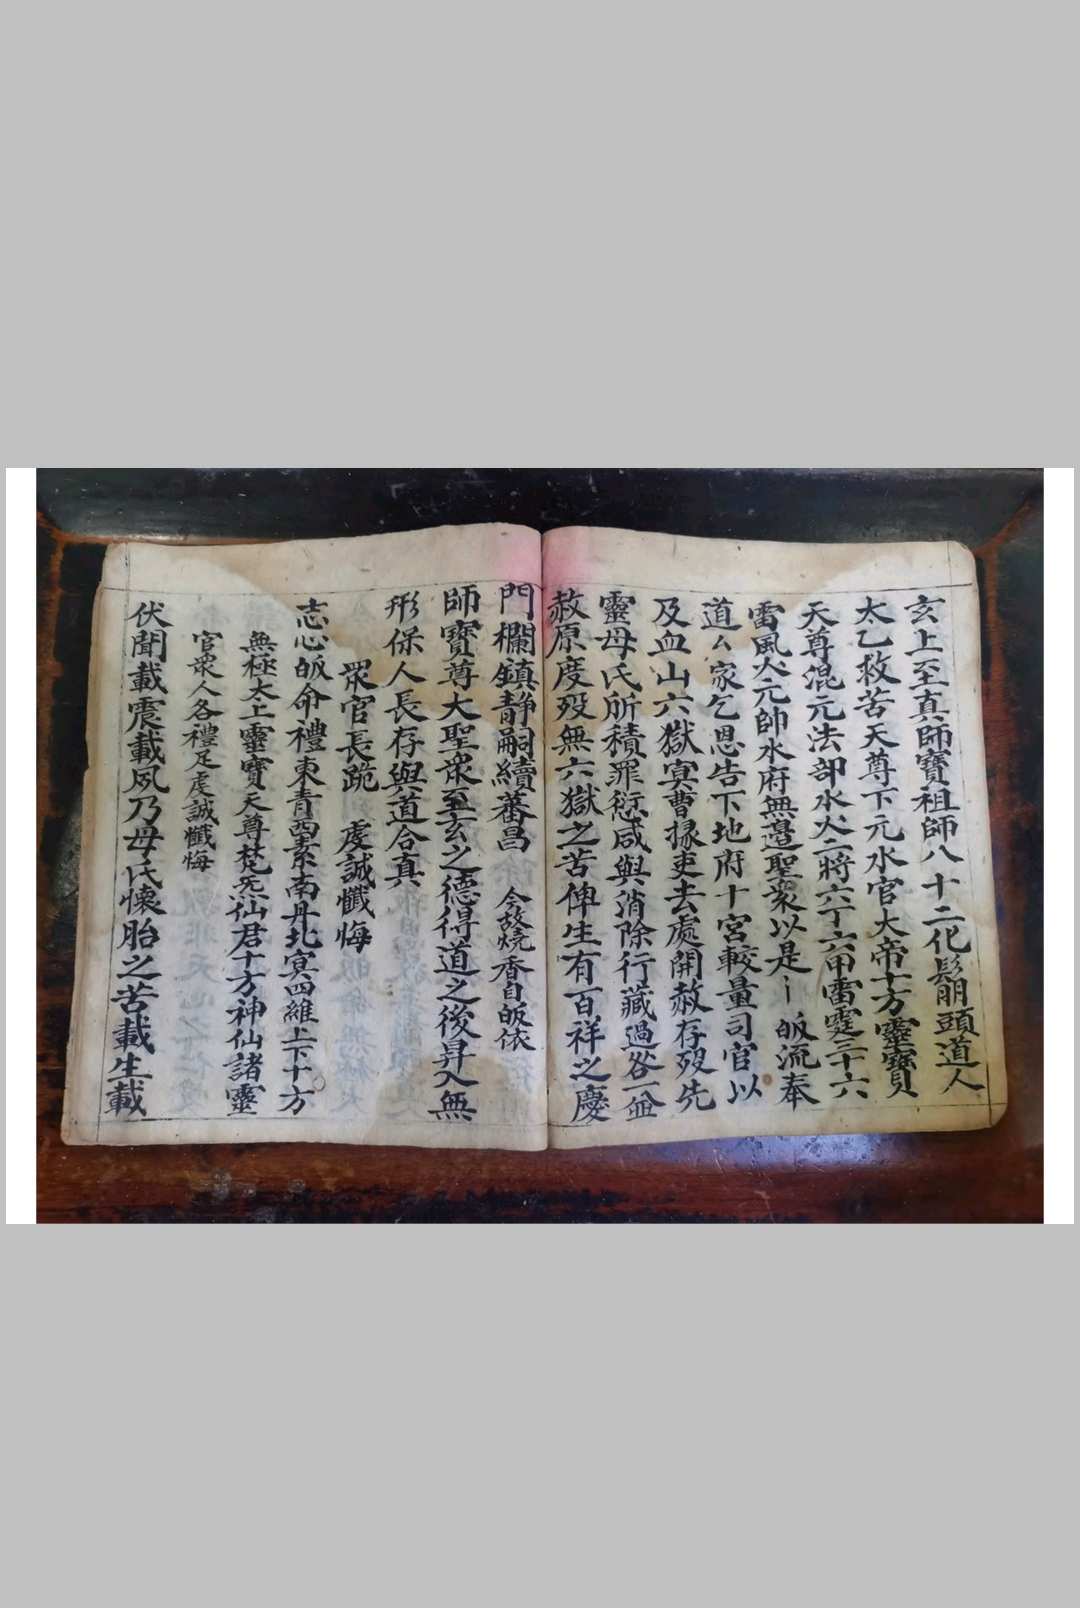 玄上至真師寶祖師八十二化鬅頭道人
太乙救苦天尊下元水官大帝十方靈寶
天尊混元法部水火二將六丁六甲雷霆三十六
雷風火元帥水府無邊聖衆以是 皈流奉
道厶家乞恩告下地府十宮較量司官以
及血山六獄冥曹掾吏去處開赦存歿先
靈母氏所積罪愆咸與消除行藏過咎一並
赦原度歿無六獄之苦俾生有百祥之慶
門欄鎮静嗣續蕃昌 今故燒香自皈依
師寶尊大聖衆至玄之德得道之後昇入無
形保人長存與道合真
衆官長跪 虔誠懺悔
志心皈命禮東青西素南丹北冥四維上下十方
無極太上靈寶天尊梵炁仙君十方神仙諸靈
官衆人各禮足虔誠懺悔
伏聞載震載夙乃母氏懷胎之苦載生載